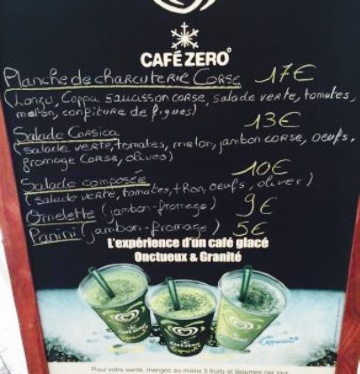 CAFÉ ZERO°
Planche de charcuterie Corse 17€
(Lonzu, Coppa, saucisson corse, salade verte, tomates,
melon, confiture de figues)
Salade Corsica 13€
(salade verte, tomates, melon, jambon corse, oeufs,
fromage Corse, olives)
Salade composée 10€
(salade verte, tomates, thon, oeufs, olives)
Omelette (jambon-fromage) 9€
Panini (jambon-fromage) 5€
L'expérience d'un café glacé
Onctueux & Granité
CAFÉ ZERO
Cappuccino
Pour votre santé, mangez au moins 5 fruits et légumes par jour